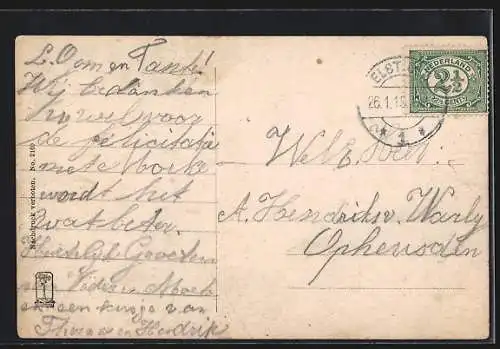 L. Oom en Tante!
Wij bedanken
U wel voor
de felicitatie
met
wordt het
wat beter.
Hartelijk Groeten
van Vader en Moeder
en een kusje van
en Hendrik
Nachdruck verboten. No. 2160
ELST
26.1.16
1
NEDERLAND
2½
CENT
Wel. Heer
A. Hendriksv. Warly
Opheusden